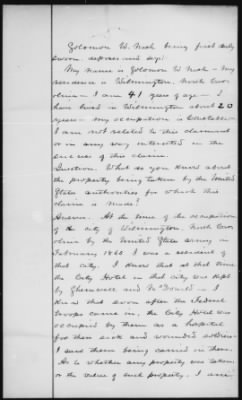 Solomon W. Nash being first duly
sworn, deposes and says:
My name is Solomon W Nash – my
residence is Wilmington, North Car-
olina – I am 41 years of age – I
have lived in Wilmington about 20
years – my occupation is
I am not related to this claimant
or in any way interested in the
success of this claim.
Question. What do you know about
the property being taken by the United
States authorities for which this
claim is made?
Answer. At the time of the occupation
of the city of Wilmington, North Car-
olina by the United States army in
February 1865 I was a resident of
that city. I know that at that time
the City Hotel in that city was kept
by and McDonald – I
know that soon after the Federal
troops came in, the City Hotel was
occupied by them as a hospital
for their sick and wounded soldiers –
I saw them being carried in there.
As to whether any property was taken
or the value of such property, I am